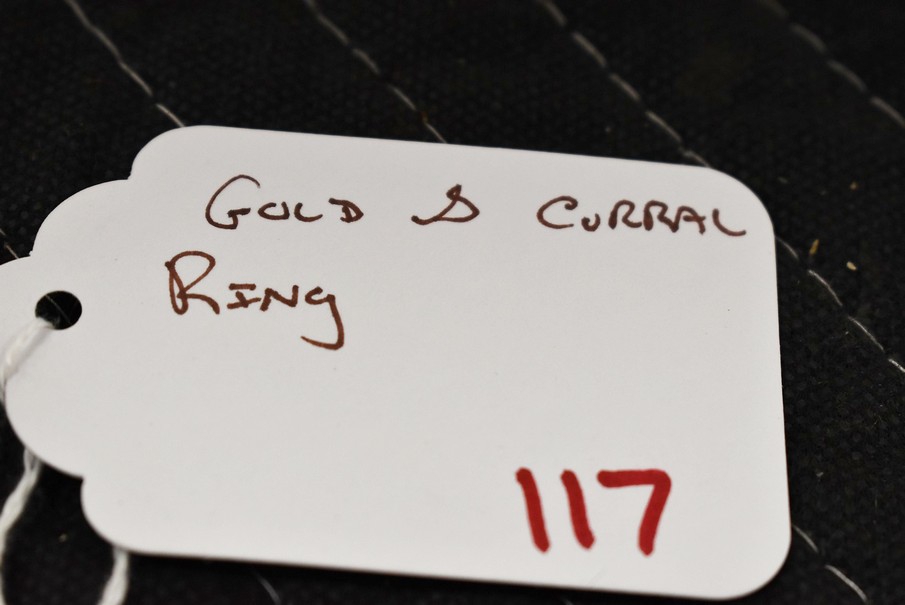 GOLD & CURRAL
RING
117